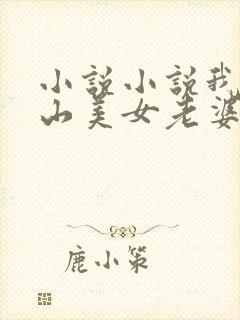 小说小说我
山美女老婆
鹿小策